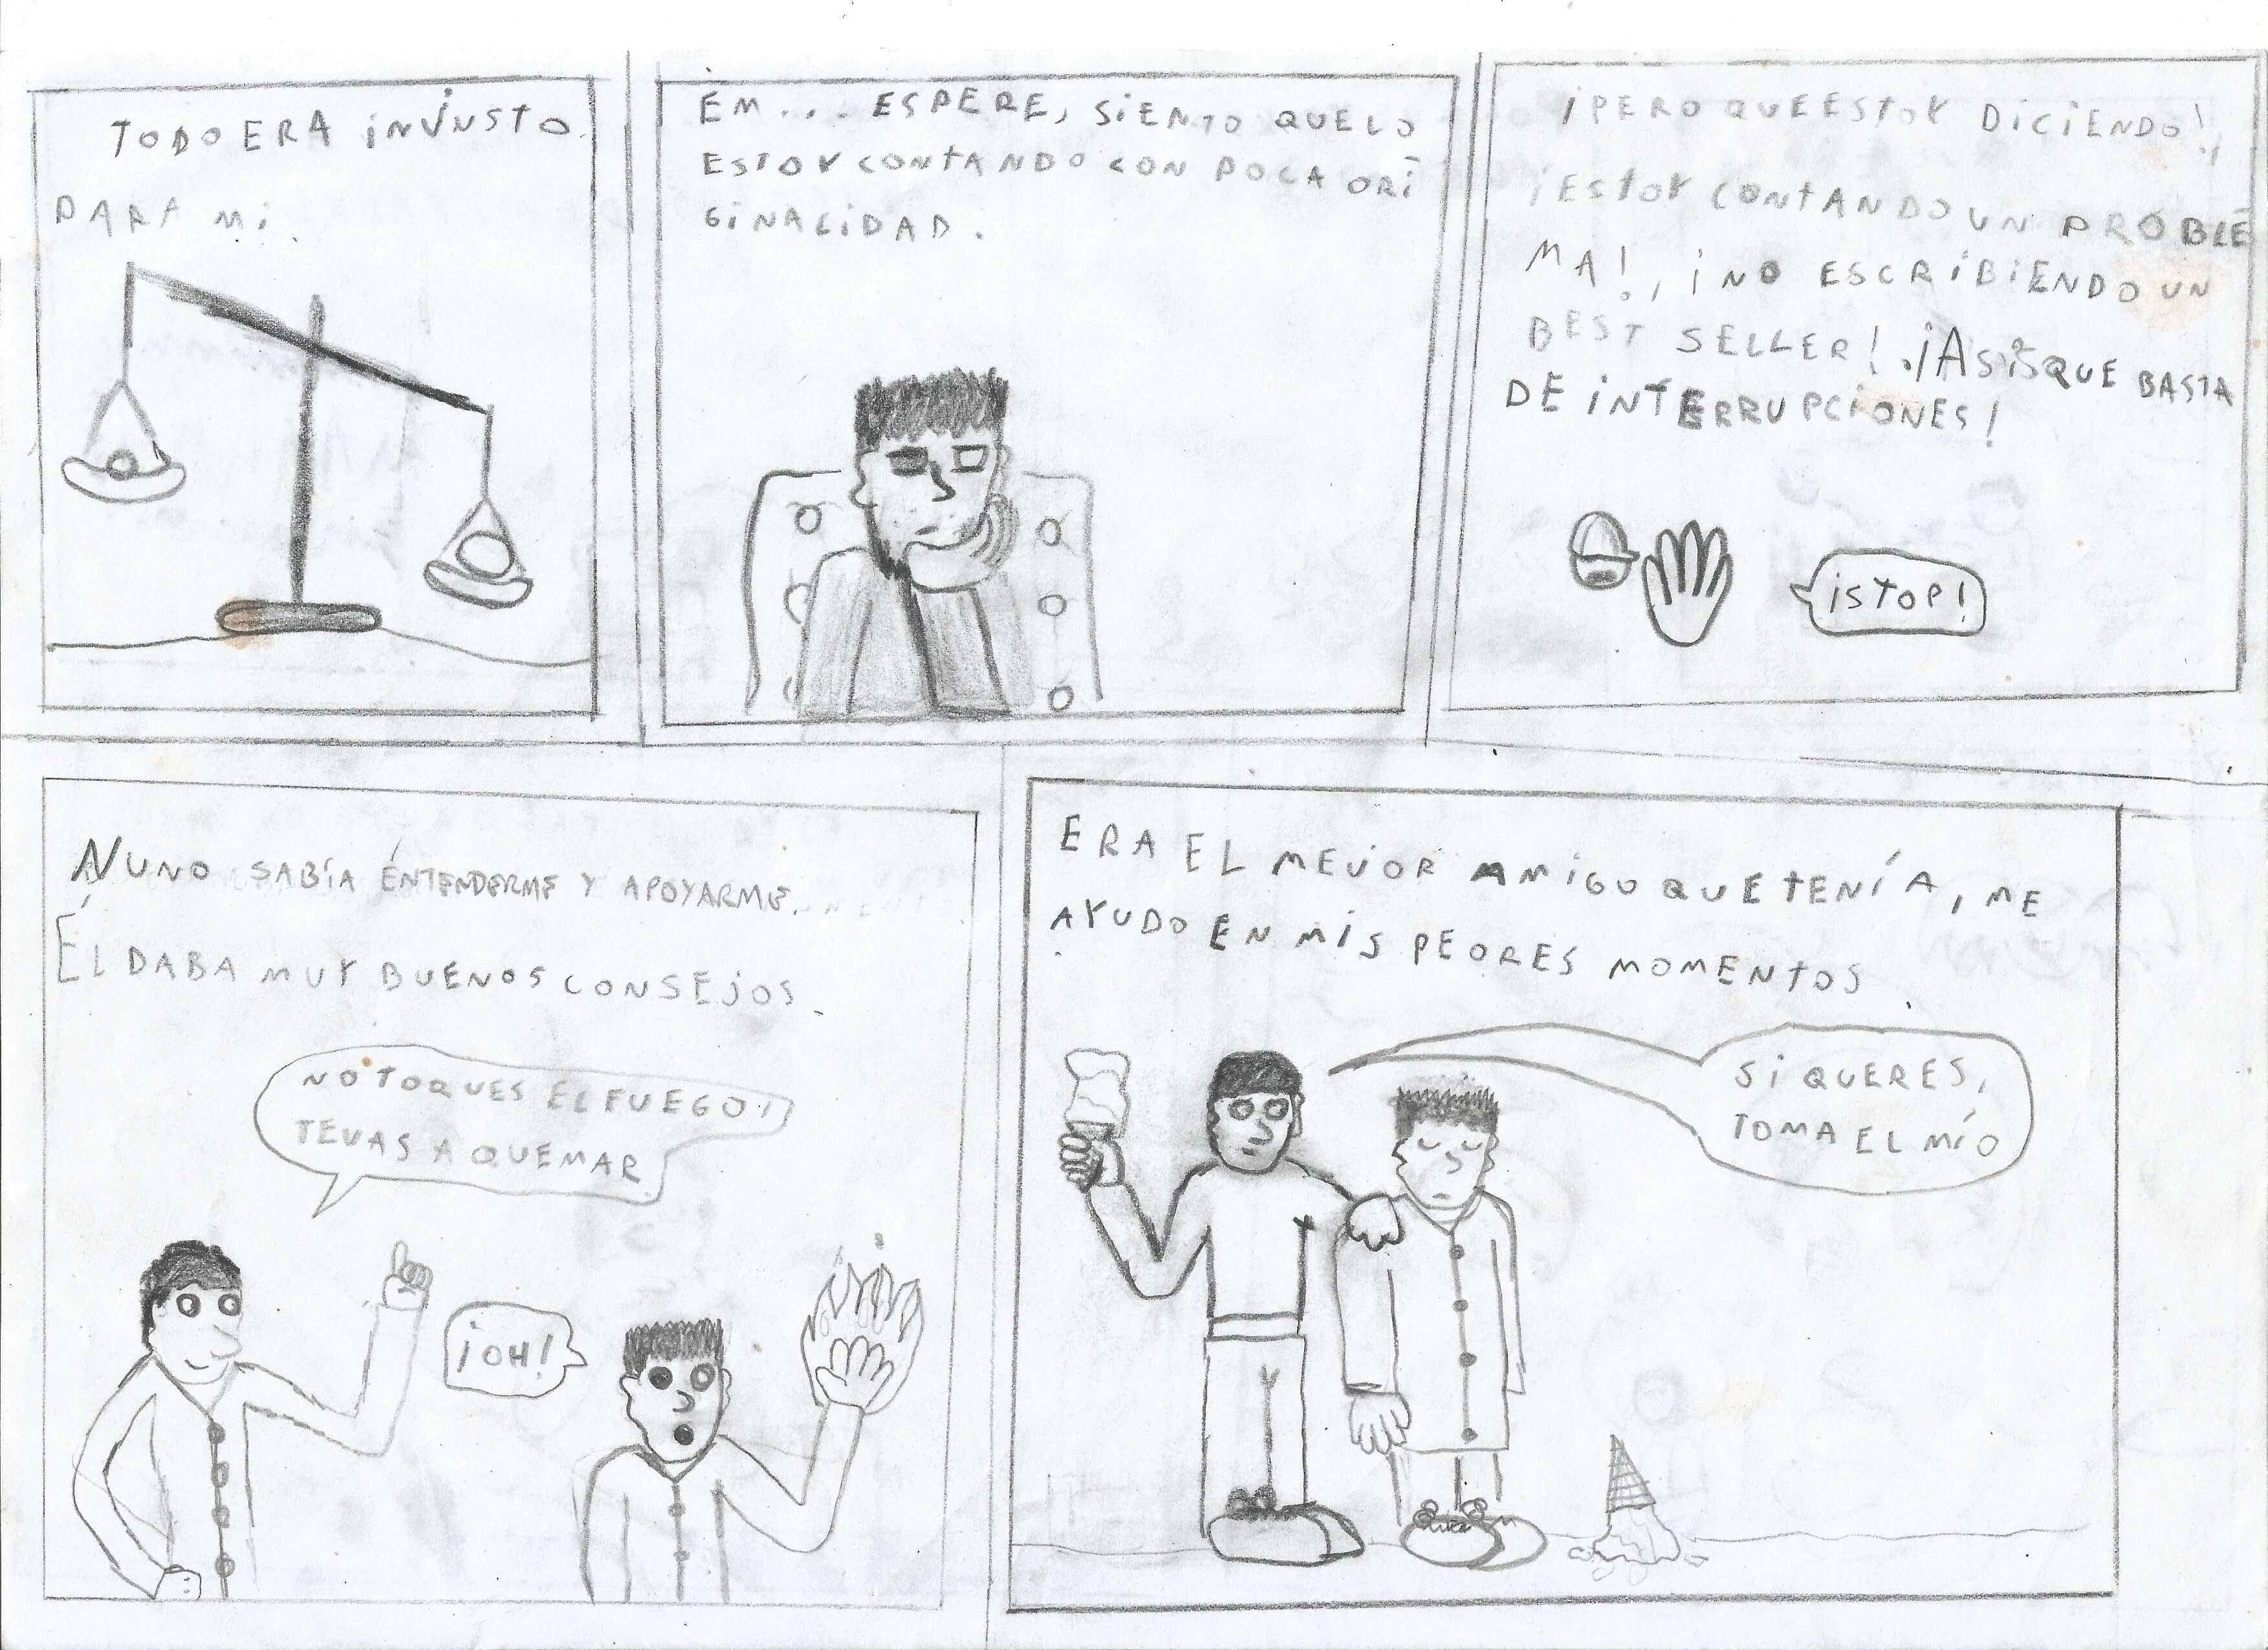 TODO ERA INJUSTO
PARA MI.
EM... ESPERE, SIENTO QUE LO
ESTOY CONTANDO CON POCA ORI
GINALIDAD.
¡PERO QUE ESTOY DICIENDO!,
¡ESTOY CONTANDO UN PROBLE
MA!, ¡NO ESCRIBIENDO UN
BEST SELLER!. ¡ASI QUE BASTA
DE INTERRUPCIONES!
¡STOP!
NUNO SABÍA ENTENDERME Y APOYARME.
ÉL DABA MUY BUENOS CONSEJOS.
NO TOQUES EL FUEGO!
TE VAS A QUEMAR
¡OH!
ERA EL MEJOR AMIGO QUE TENÍA, ME
AYUDO EN MIS PEORES MOMENTOS.
SI QUERES,
TOMA EL MÍO